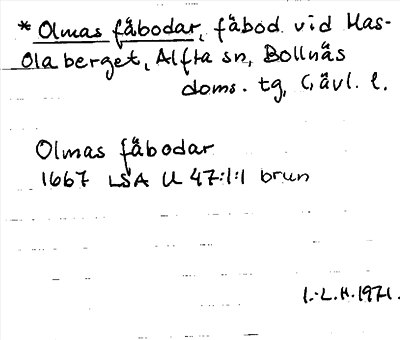 * Olmas fåbodar, fåbod vid Mas-
Ola berget, Alfta sn, Bollnäs
doms. tg, Gävl. l.
Olmas fåbodar
1667 LSA U 47:1:1 brun
I.-L.H. 1971.